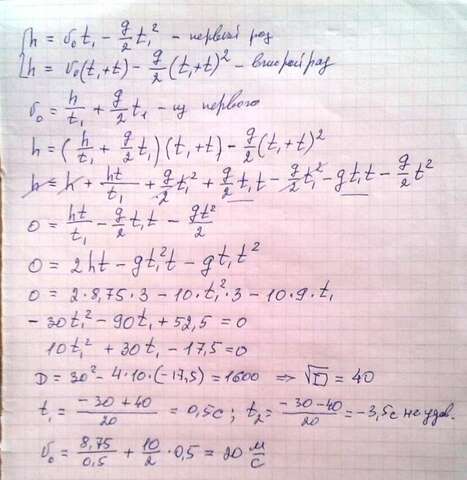 h = υ₀t₁ − g/2 t₁² − первый раз
h = υ₀(t₁+t) − g/2 (t₁+t)² − второй раз
υ₀ = h/t₁ + g/2 t₁ − из первого
h = (h/t₁ + g/2 t₁)(t₁+t) − g/2 (t₁+t)²
h = h + ht/t₁ + g/2 t₁² + g/2 t₁t − g/2 t₁² − gt₁t − g/2 t²
0 = ht/t₁ − g/2 t₁t − gt²/2
0 = 2ht − gt₁²t − gt₁t²
0 = 2·8,75·3 − 10·t₁²·3 − 10·9·t₁
−30t₁² − 90t₁ + 52,5 = 0
10t₁² + 30t₁ − 17,5 = 0
D = 30² − 4·10·(−17,5) = 1600 ⇒ √D = 40
t₁ = −30+40/20 = 0,5с; t₂ = −30−40/20 = −3,5с не удов.
υ₀ = 8,75/0,5 + 10/2 · 0,5 = 20 м/с